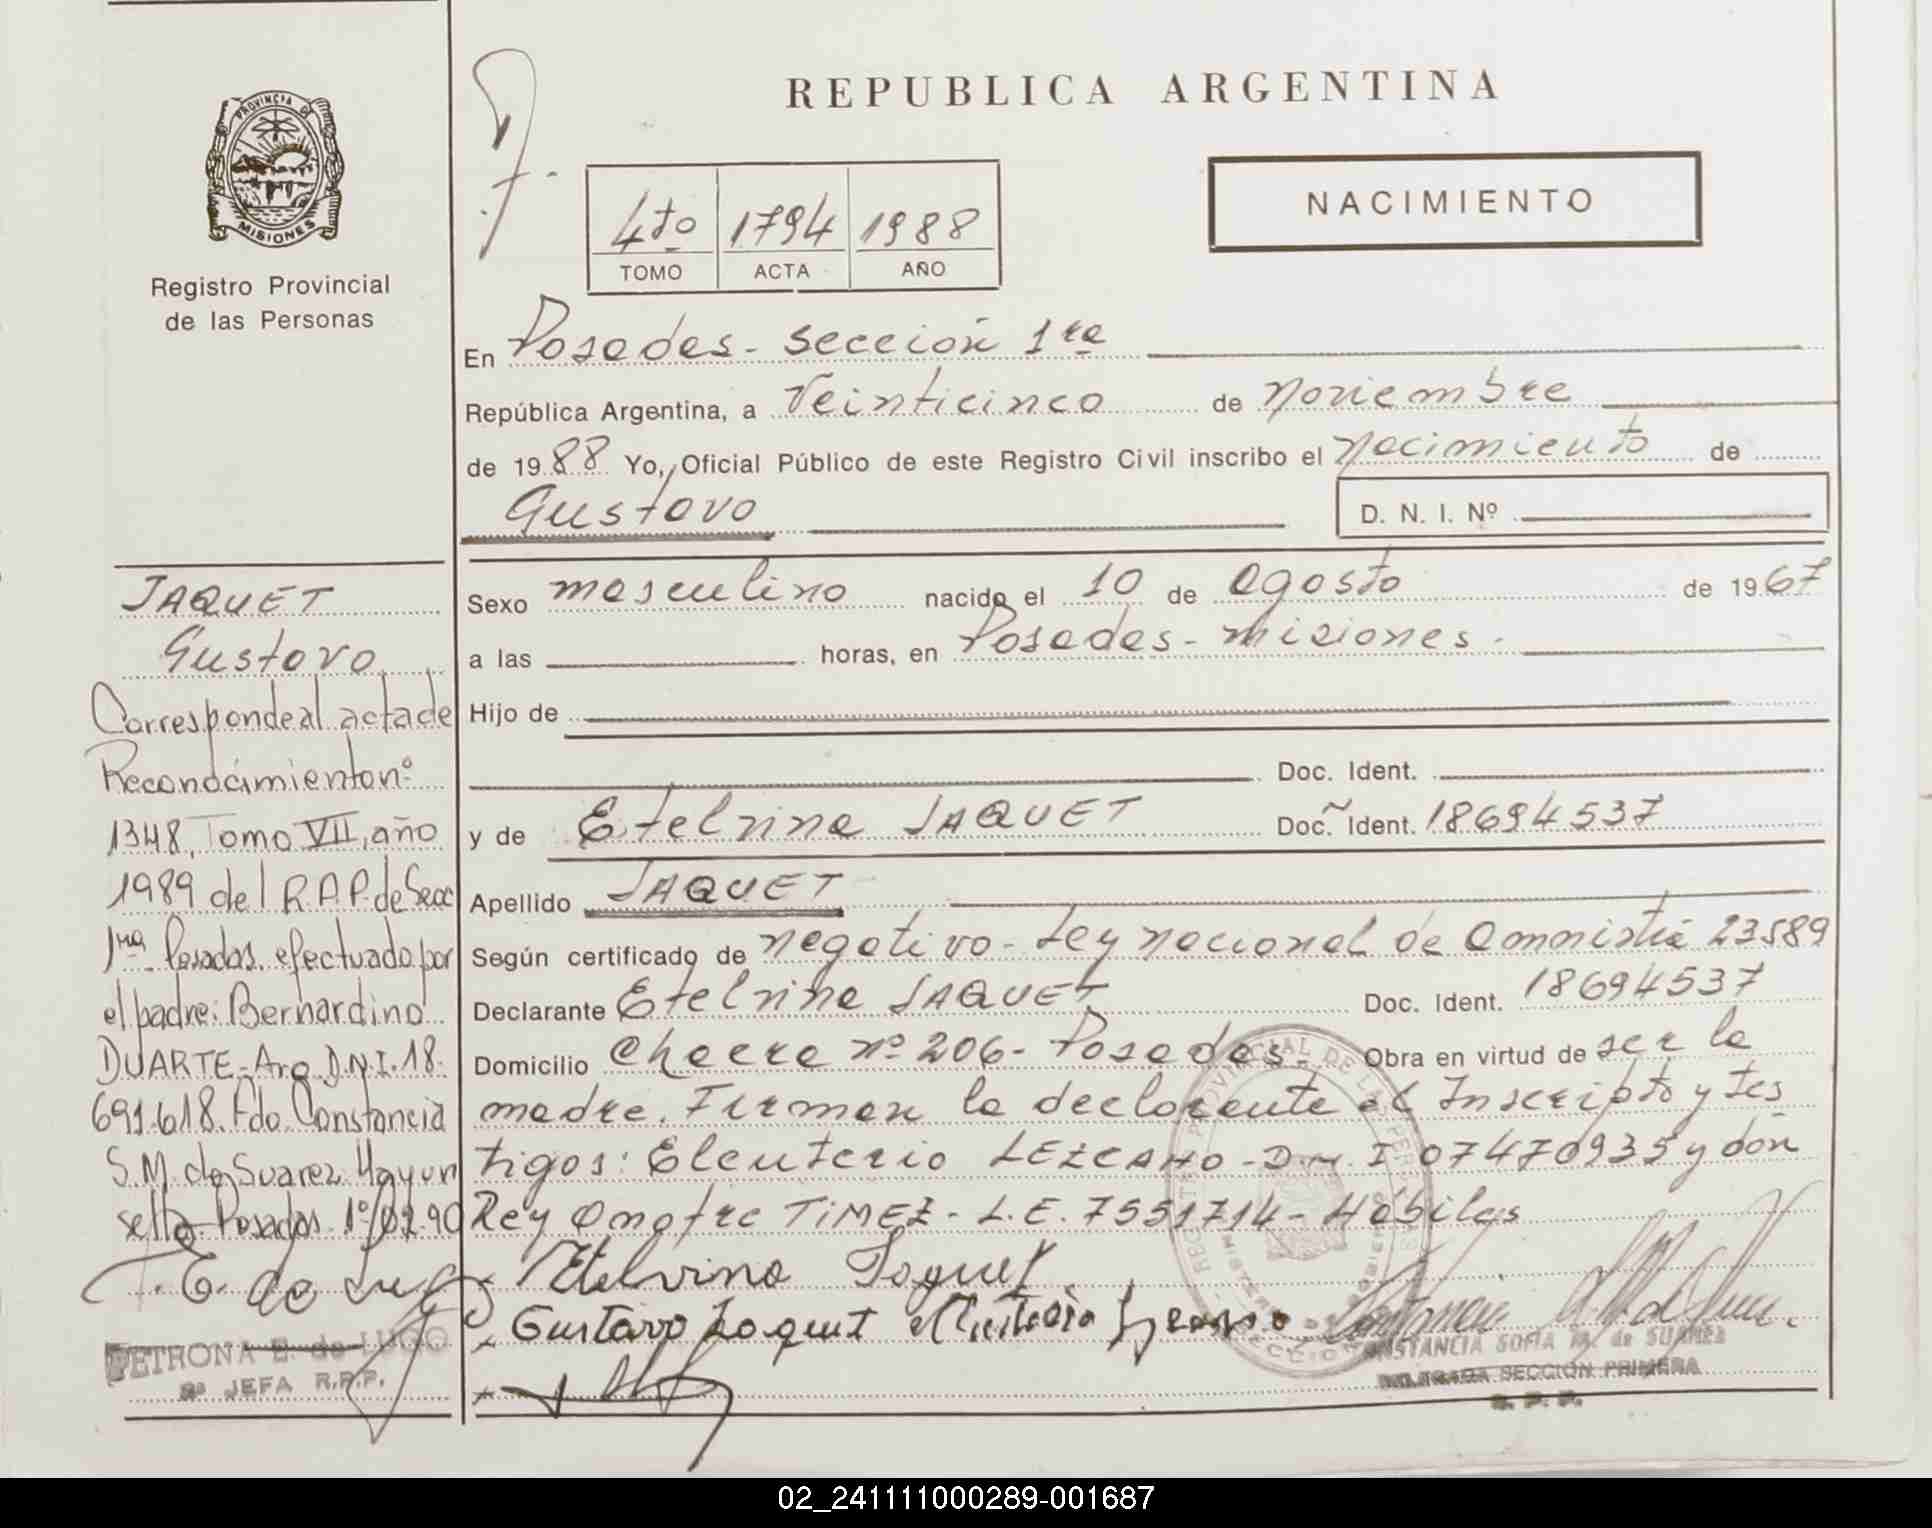 REPUBLICA ARGENTINA
NACIMIENTO
4to 1794 1988
TOMO ACTA AÑO
PROVINCIA DE
MISIONES
Registro Provincial
de las Personas
En Posadas - sección 1ra
República Argentina, a Veinticinco de noviembre
de 1988 Yo, Oficial Público de este Registro Civil inscribo el nacimiento de
Gustavo
D. N. I. Nº
Sexo masculino nacido el 10 de agosto de 1967
a las horas, en Posadas - misiones.
Hijo de
Doc. Ident.
y de Etelvina JAQUET Doc. Ident. 18694537
Apellido JAQUET
Según certificado de negativo - Ley nacional de Amnistía 23589
Declarante Etelvina JAQUET Doc. Ident. 18694537
Domicilio Chacra nº 206 - Posadas. Obra en virtud de ser la
madre. Firman la declarante el Inscripto y tes
tigos: Eleuterio LEZCANO - D.N.I 07470935 y don
Rey Onofre TIMEZ - L.E. 7551714 - Hábiles
Etelvina Jaquet
Gustavo Jaquet
CONSTANCIA SOFIA M. de SUAREZ
DELEGADA SECCION PRIMERA
R. P. P.
JAQUET
Gustavo
Corresponde al acta de
Reconocimiento nº
1348, Tomo VII, año
1989 del R.A.P. de Secc
1ra Posadas. efectuado por
el padre: Bernardino
DUARTE - Arg. D.N.I. 18.
691.618. Fdo. Constancia
S.M. de Suarez. Hay un
sello Posadas. 1º/02.90
P. E. de Lugo
PETRONA E. de LUGO
JEFA R.P.P.
02_241111000289-001687